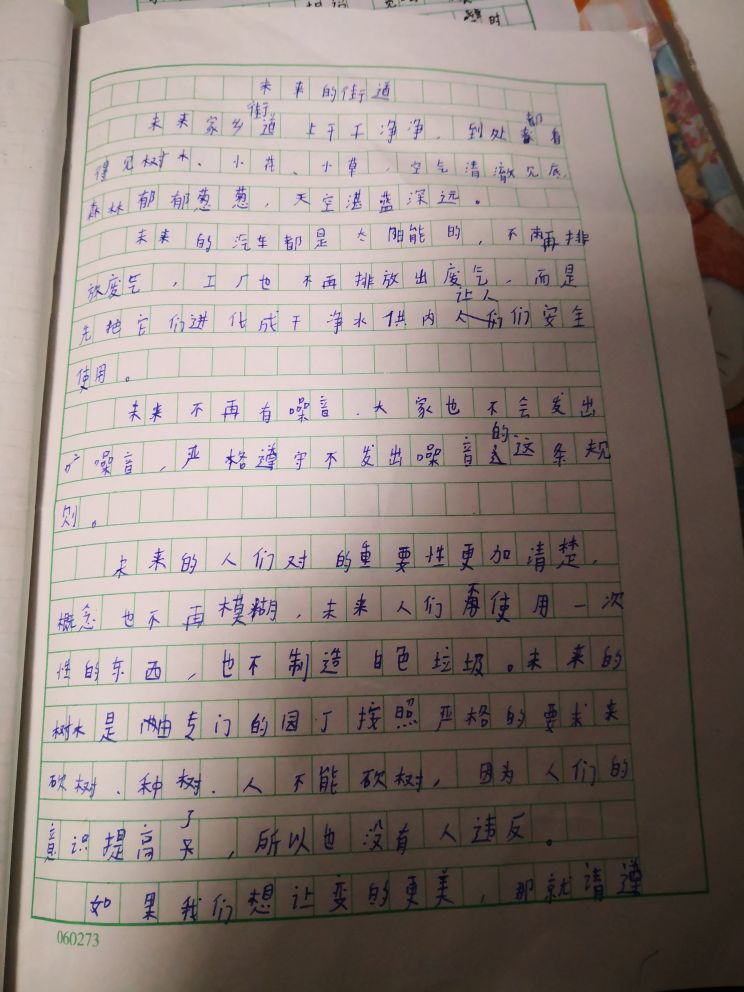 未来的街道
未来家乡街道上干干净净，到处都看
得见树木、小花、小草，空气清澈见底，
森林郁郁葱葱，天空湛蓝深远。
未来的汽车都是太阳能的，不再排
放废气，工厂也不再排放出废气，而是
先把它们进化成干净水供内让人们安全
使用。
未来不再有噪音，大家也不会发出
噪音，严格遵守不发出噪音的这条规
则。
未来的人们对的重要性更加清楚，
概念也不再模糊，未来人们再使用一次
性的东西，也不制造白色垃圾。未来的
树木是由专门的园丁按照严格的要求来
砍树、种树，人不能砍树，因为人们的
意识提高了，所以也没有人违反。
如果我们想让变的更美，那就请遵
060273